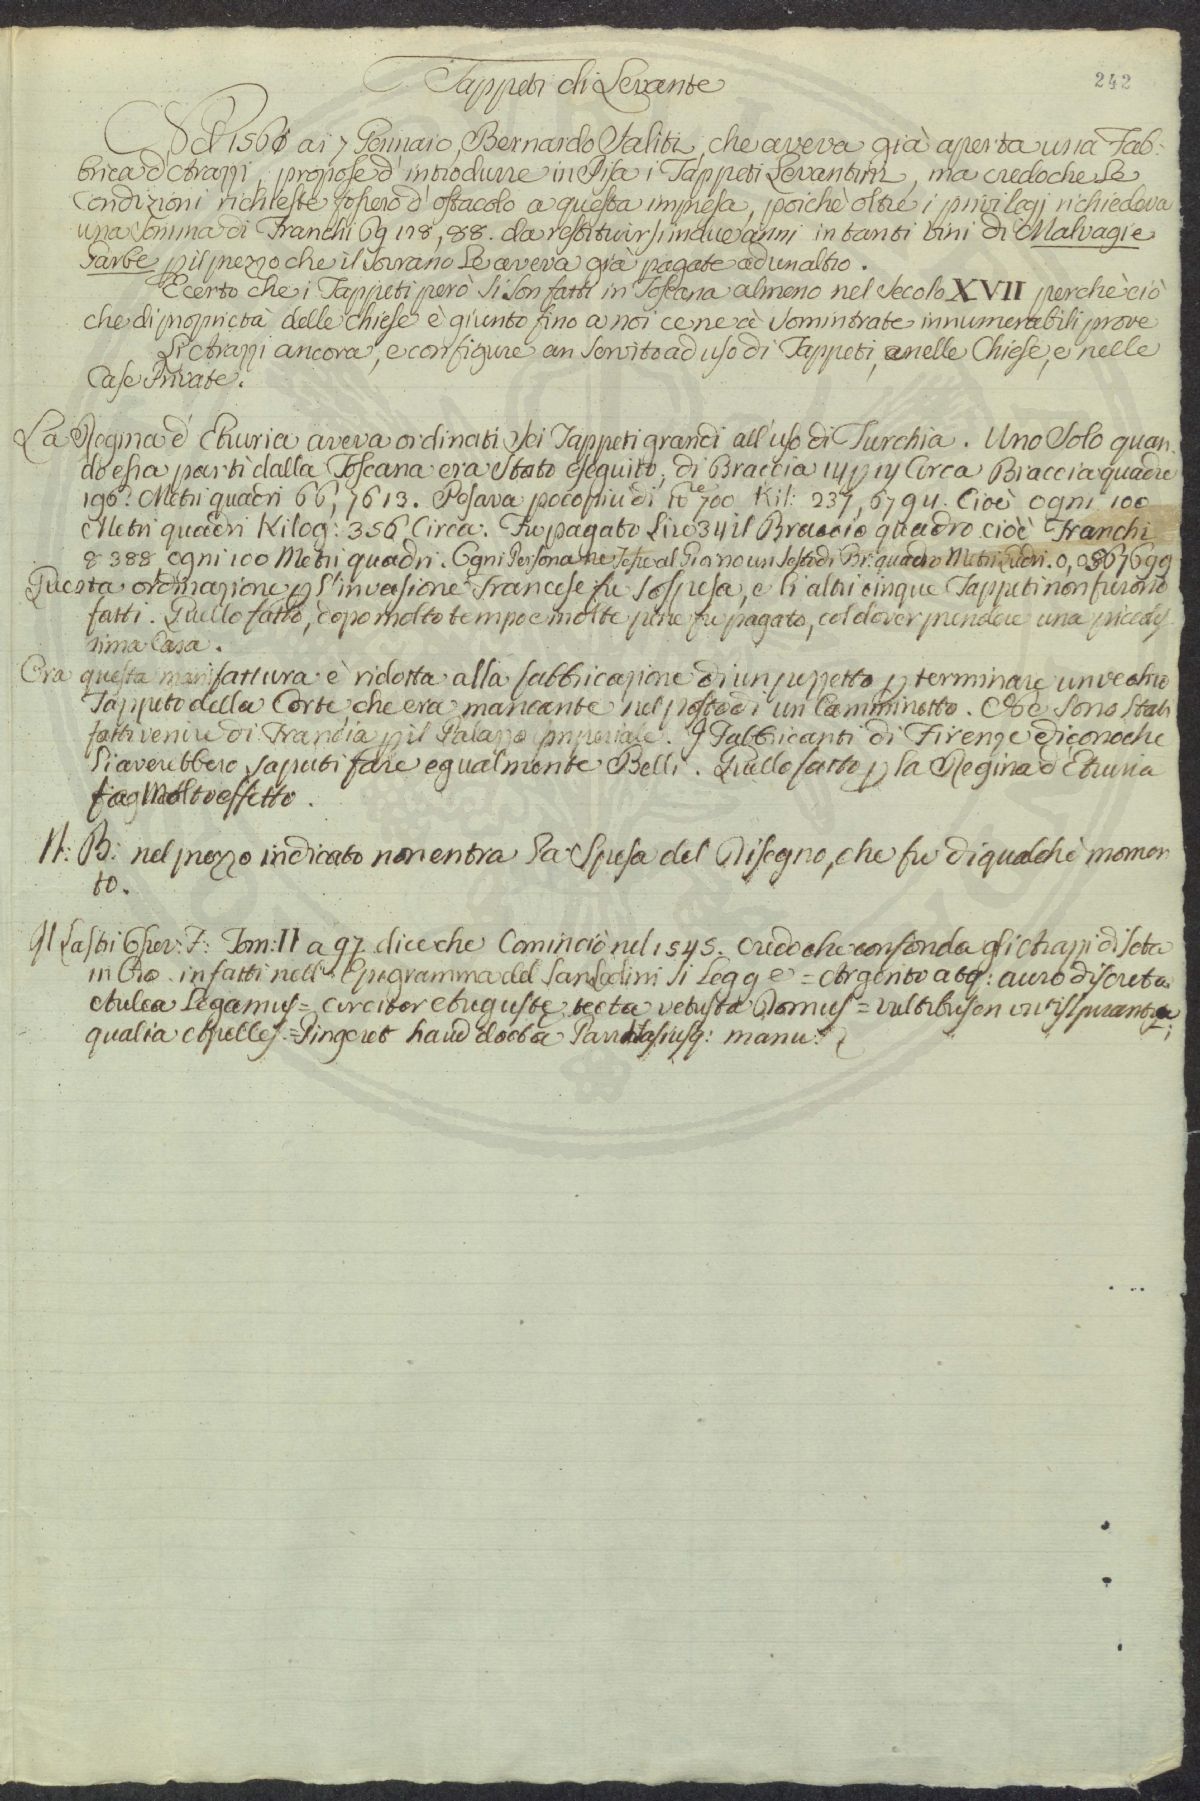 242
Tappeti di Levante
Nel 1566 ai 7 Gennaio, Bernardo Saliti, che aveva già aperta una Fab:
brica d'Arazzi, propose d'introdurre in Pisa i Tappeti Levantini, ma credo che le
Condizioni richieste fossero d'ostacolo a questa impresa, poichè oltre i privilegj richiedeva
una Somma di Franchi 69 118, 88. da restituirsi in due anni in tanti bini di Malvagie
Farbe p il prezzo che il Sovrano le aveva gia pagate ad un altro.
E certo che i Tappeti però si son fatti in Toscana almeno nel Secolo XVII perchè ciò
che di proprietà delle Chiese è giunto fino a noi ce ne à somintrate innumerabili prove
Li Arazzi ancora, e con figure an servito ad uso di Tappeti, e nelle Chiese, e nelle
Case Private.
La Regina d'Etruria aveva ordinati Sei Tappeti grandi all'uso di Turchia. Uno Solo quan
do essa partì dalla Toscana era Stato eseguito, di Braccia 14 p 14 Circa Braccia quadre
196. Metri quadri 66, 7613. Pesava poco piu di 700 Kil: 237, 6794. Cioè ogni 100
Metri quadri Kilog: 356 Circa. Fu pagato Lire 34 il Braccio quadro cioè Franchi
8388 ogni 100 Metri quadri. Ogni Persona ne Tesse al Giorno un Sesto di Br: quadro Metri Qudri. 0,0567699
Questa ordinazione p l'invasione Francese fu Sospesa, e li altri cinque Tappeti non furono
fatti. Quello fatto, dopo molto tempo e molte pene fu pagato, col dover prendere una piccolis
sima Casa.
Ora questa manifattura è ridotta alla fabbricazione di un pezzetto p terminare un vechio
Tappeto della Corte, che era mancante nel posto di un Camminetto. Ove Sono Stati
fatti venire di Francia p il Palazzo Imperiale. I Fabbricanti di Firenze dicono che
li averebbero saputi fare egualmente Belli. Quello fatto p la Regina d'Etruria
fa Molto effetto.
N: B: nel prezzo indicato non entra la Spesa del Disegno, che fu di qualche momen
to.
Il Lastri Osser: F: Tom: II a 97 dice che Cominciò nel 1545. Credo che confonda gli Arazzi di Seta
in Oro. infatti nell' Epigramma del Sansedini Si Legge = Argento atq: auro discreta
Aulea Legamus = circiter Auguste tecta vetusta Domus = Vultibus en vivis spirantia;
qualia Apelles = Pingeret haud docta Parrhasiusq: manu.